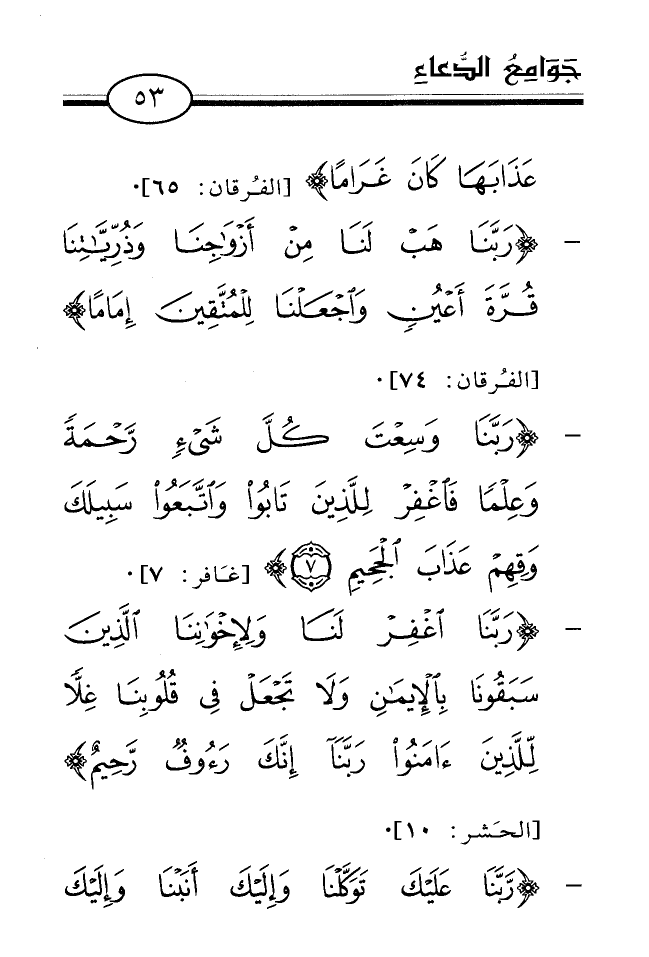 جَوَامِعُ الدُّعَاءِ
٥٣
عَذَابَهَا كَانَ غَرَامًا﴾ [الفُرقان: ٦٥].
- ﴿رَبَّنَا هَبْ لَنَا مِنْ أَزْوَٰجِنَا وَذُرِّيَّـٰتِنَا
قُرَّةَ أَعْيُنٍ وَٱجْعَلْنَا لِلْمُتَّقِينَ إِمَامًا﴾
[الفُرقان: ٧٤].
- ﴿رَبَّنَا وَسِعْتَ كُلَّ شَىْءٍ رَّحْمَةً
وَعِلْمًا فَٱغْفِرْ لِلَّذِينَ تَابُوا۟ وَٱتَّبَعُوا۟ سَبِيلَكَ
وَقِهِمْ عَذَابَ ٱلْجَحِيمِ ٧﴾ [غَافر: ٧].
- ﴿رَبَّنَا ٱغْفِرْ لَنَا وَلِإِخْوَٰنِنَا ٱلَّذِينَ
سَبَقُونَا بِٱلْإِيمَـٰنِ وَلَا تَجْعَلْ فِى قُلُوبِنَا غِلًّا
لِّلَّذِينَ ءَامَنُوا۟ رَبَّنَآ إِنَّكَ رَءُوفٌ رَّحِيمٌ﴾
[الحَشر: ١٠].
- ﴿رَّبَّنَا عَلَيْكَ تَوَكَّلْنَا وَإِلَيْكَ أَنَبْنَا وَإِلَيْكَ